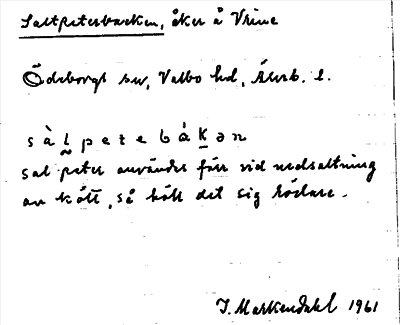 Saltpeterbacken, åker å Vrine
Ödeborgs sn, Valbo hd, Älvsb. l.
sàl̰petebákən
salpeter användes förr vid nedsaltning
av kött, så höll det sig rödare.
J. Markendahl 1961